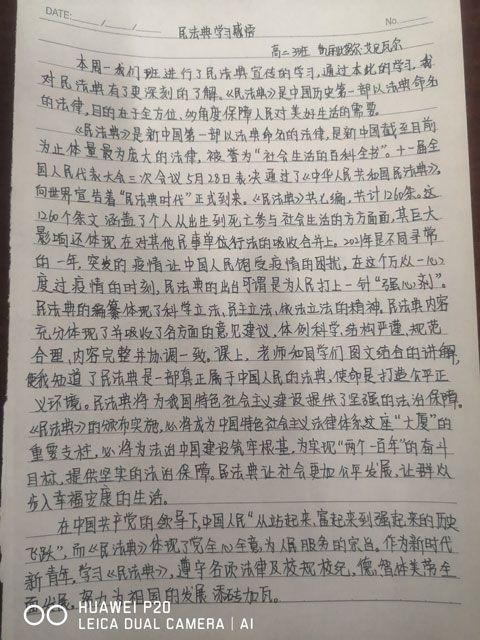 DATE:
No.
民法典学习感悟
高二3班
本周一我们班进行了民法典宣传的学习,通过本此的学习,我
对民法典有了更深刻的了解。《民法典》是中国历史第一部以法典命名
的法律,目的在于全方位,多角度保障人民对美好生活的需要。
《民法典》是新中国第一部以法典命名的法律,是新中国截至目前
为止体量最为庞大的法律,被誉为“社会生活的百科全书”。十一届全
国人民代表大会三次会议5月28日表决通过了《中华人民共和国民法典》。
向世界宣告着“民法典时代”正式到来。《民法典》共七编,共计1260条。这
1260个条文涵盖了个人从出生到死亡参与社会生活的方方面面,其巨大
影响还体现在对其他民事单位行法的吸收合并上。2021年是不同寻常
的一年,突发的疫情让中国人民饱受疫情的困扰,在这个万众一心
度过疫情的时刻,民法典的出台可谓是为人民打上一针“强心剂”。
民法典的编纂体现了科学立法,民主立法,依法立法的精神,民法典内容
充分体现了并吸收了各方面的意见建议,体例科学,结构严谨,规范
合理,内容完整并协调一致。课上,老师和同学们图文结合的讲解,
使我知道了民法典是一部真正属于中国人民的法典,使命是打造公平正
义环境。民法典将为我国特色社会主义建设提供了坚强的法治保障。
《民法典》的颁布实施,必将成为中国特色社会主义法律体系这座“大厦”的
重要支柱,必将为法治中国建设筑牢根基,为实现“两个一百年”的奋斗
目标,提供坚实的法治保障。民法典让社会更加公平发展,让群众
步入幸福安康的生活。
在中国共产党的领导下,中国人民“从站起来,富起来到强起来的历史
飞跃”,而《民法典》体现了完全心全意为人民服务的宗旨。作为新时代
新青年,学习《民法典》,遵守各项法律及校规校纪,德智体美劳全
面发展,努力为祖国的发展添砖加瓦。
HUAWEI P20
LEICA DUAL CAMERA | AI